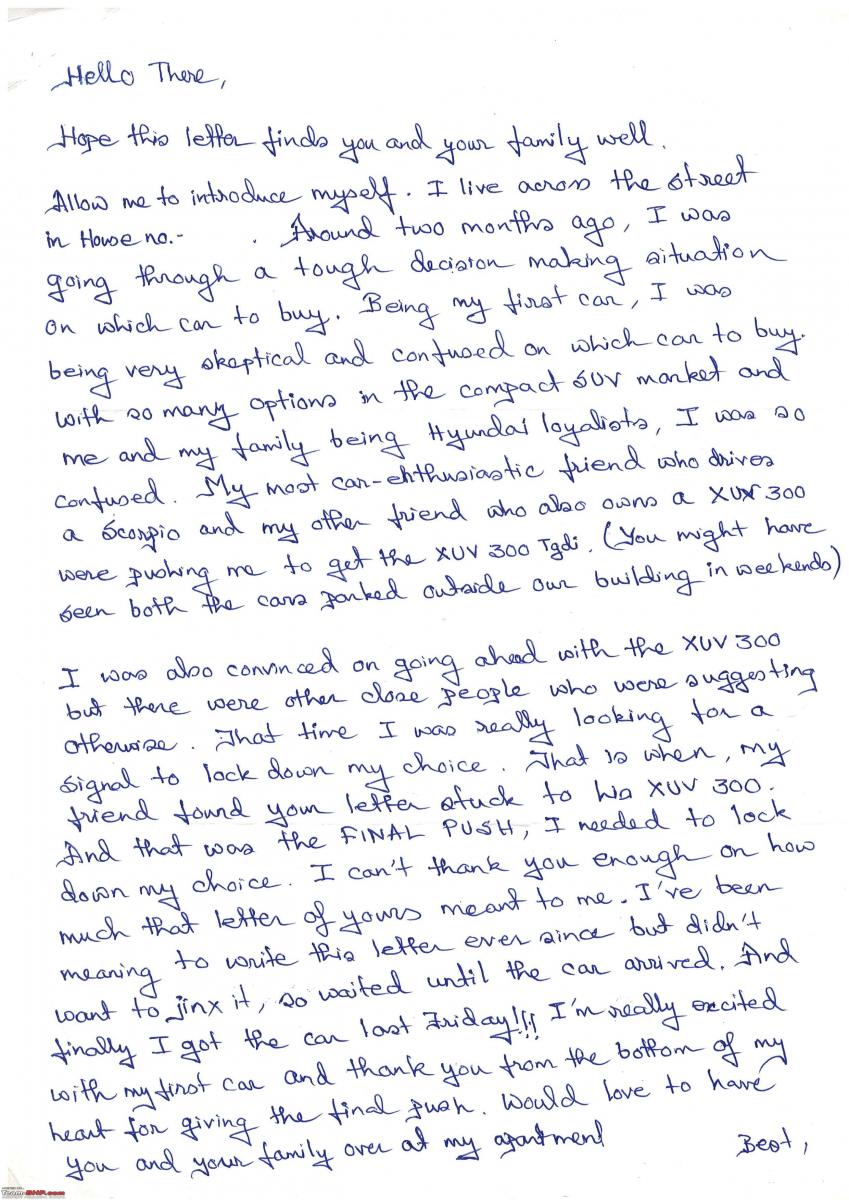 Hello There,
Hope this letter finds you and your family well.
Allow me to introduce myself. I live across the street
in House no.- . Around two months ago, I was
going through a tough decision making situation
on which car to buy. Being my first car, I was
being very skeptical and confused on which car to buy.
With so many options in the compact SUV market and
me and my family being Hyundai loyalists, I was so
confused. My most car-enthusiastic friend who drives
a Scorpio and my other friend who also owns a XUV 300
were pushing me to get the XUV 300 Tgdi. (You might have
seen both the cars parked outside our building in weekends)
I was also convinced on going ahead with the XUV 300
but there were other close people who were suggesting
otherwise. That time I was really looking for a
signal to lock down my choice. That is when, my
friend found your letter stuck to his XUV 300.
And that was the FINAL PUSH, I needed to lock
down my choice. I can't thank you enough on how
much that letter of yours meant to me. I've been
meaning to write this letter ever since but didn't
want to jinx it, so waited until the car arrived. And
finally I got the car last Friday!!! I'm really excited
with my first car and thank you from the bottom of my
heart for giving the final push. Would love to have
you and your family over at my apartment
Best,
Team-BHP.com